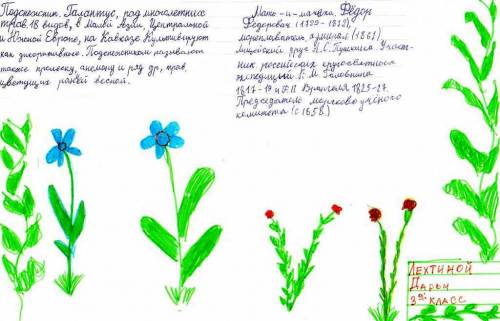 Подснежник, Галантус, род многолетних
трав 18 видов, в Малой Азии, Центральной
и Южной Европе, на Кавказе Культивируют
как декоративное. Подснежником называют
также пролеску, анемону и ряд др. трав,
цветущих ранней весной.
Мать-и-мачеха. Фёдор
Фёдорович (1799-1882),
мореплаватель, адмирал (1867).
Лицейский друг А.С. Пушкина. Участ-
ник российских кругосветных
экспедиций В. М. Головнина
1817-19 и Ф.П. Врангеля 1825-27.
Председатель морского учёного
комитета (с 1858.)
ЛЕХТИНОЙ
ДАРЬИ
3 КЛАСС